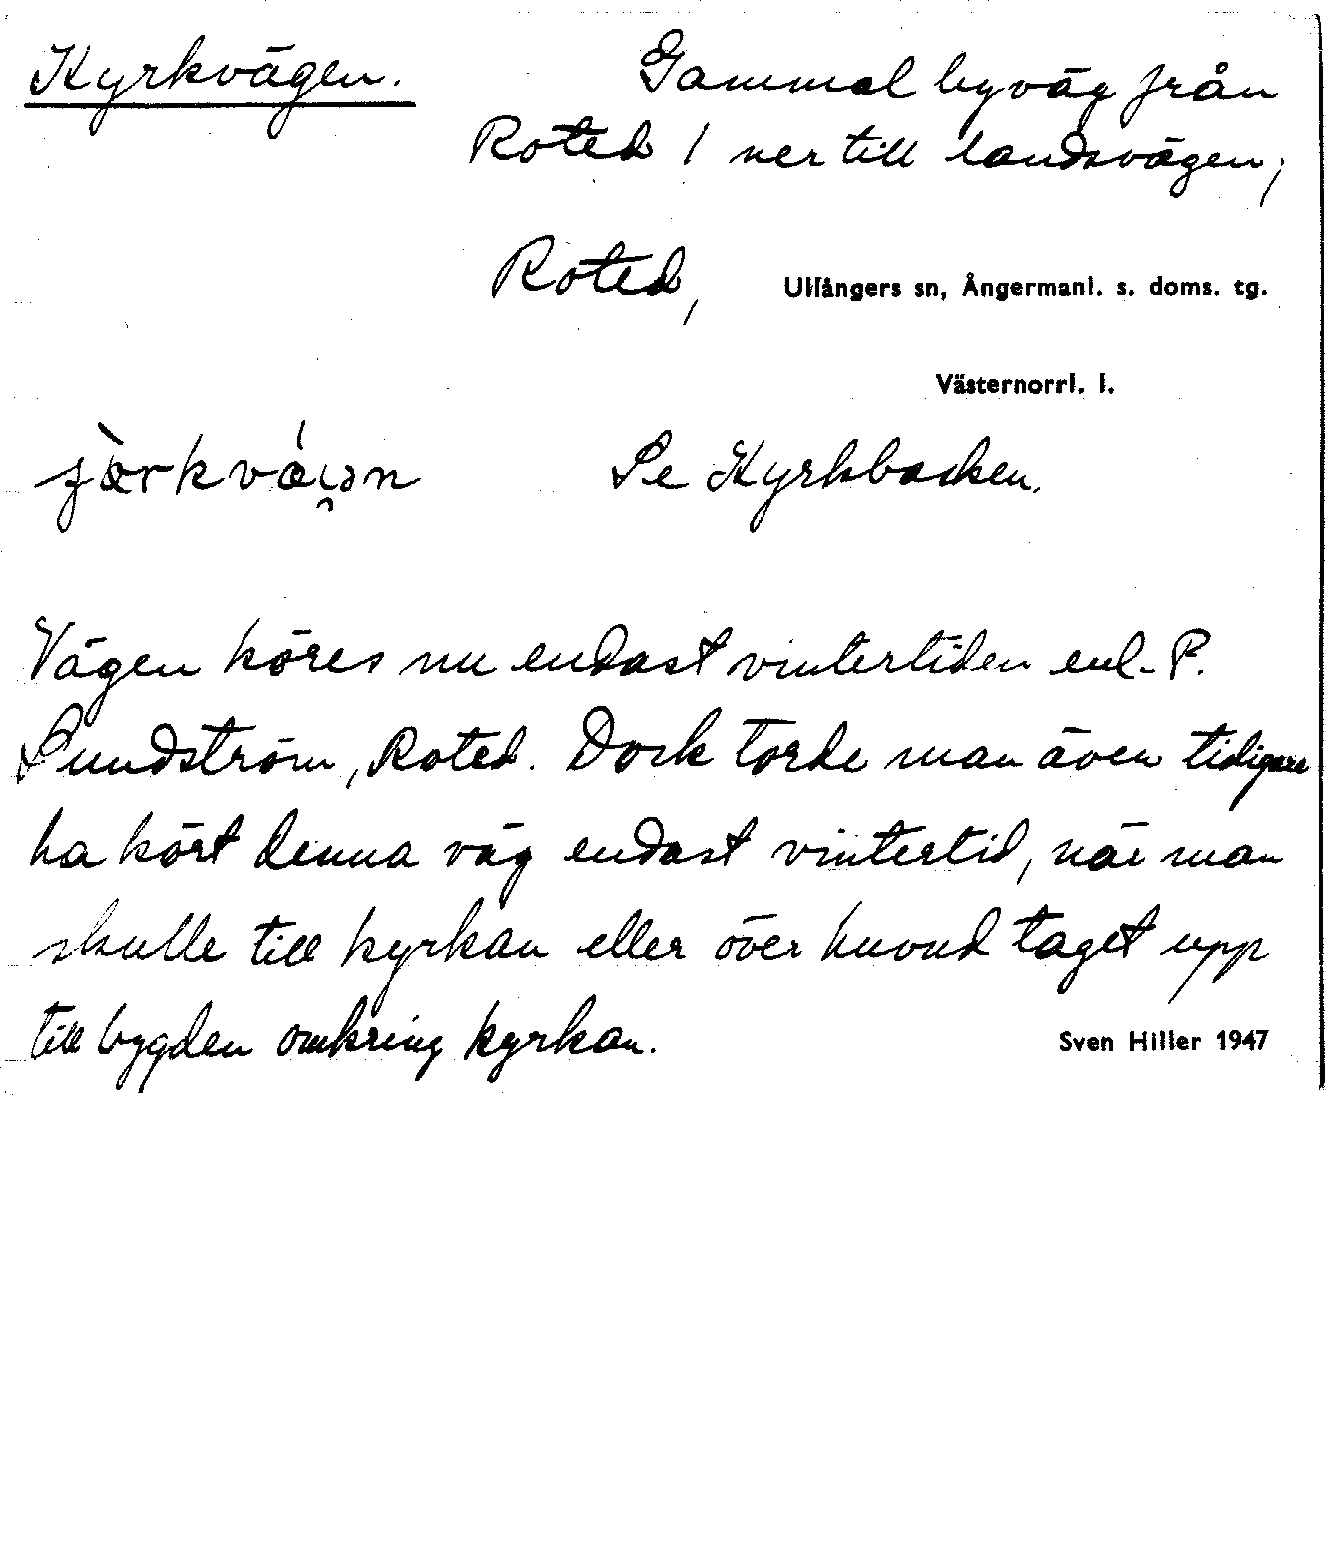 Kyrkvägen. Gammal byväg från
Roted 1 ner till landsvägen,
Roted, Ullångers sn, Ångermanl. s. doms. tg.
Västernorrl. l.
Se Kyrkbacken.
Vägen köres nu endast vintertiden enl. P.
Sundström, Roted. Dock torde man även tidigare
ha kört denna väg endast vintertid, när man
skulle till kyrkan eller över huvud taget upp
till bygden omkring kyrkan.
Sven Hiller 1947